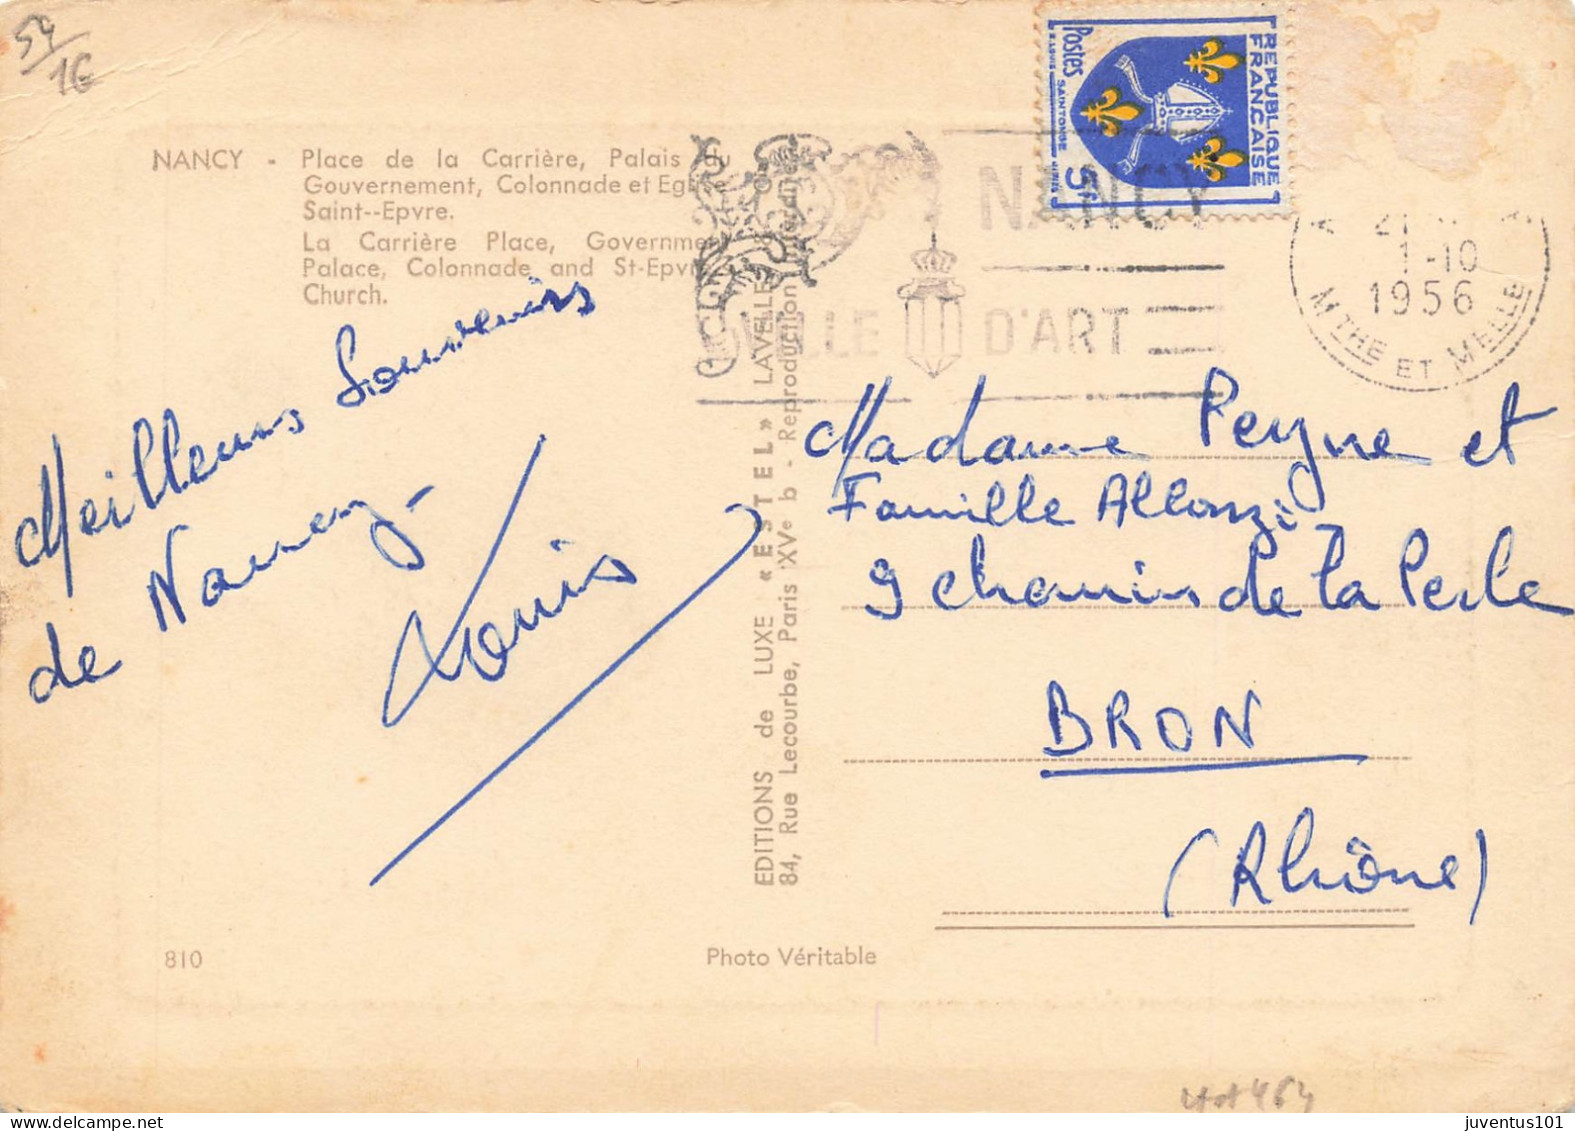 54/16
NANCY - Place de la Carrière, Palais du
Gouvernement, Colonnade et Eglise
Saint--Epvre.
La Carrière Place, Government
Palace, Colonnade and St-Epvre
Church.
Meilleurs Souvenirs
de Nancy-
Louis
810
Photo Véritable
EDITIONS de LUXE « ESTEL » LAVELLE &
84, Rue Lecourbe, Paris XVe b - Reproduction
REPUBLIQUE
FRANÇAISE
Postes
SAINTONGE
5f
NANCY
VILLE D'ART
21
1-10
1956
MTHE ET MELLE
Madame Peyne et
Famille Allonzi
9 chemin de la Perle
BRON
(Rhône)
juventus101